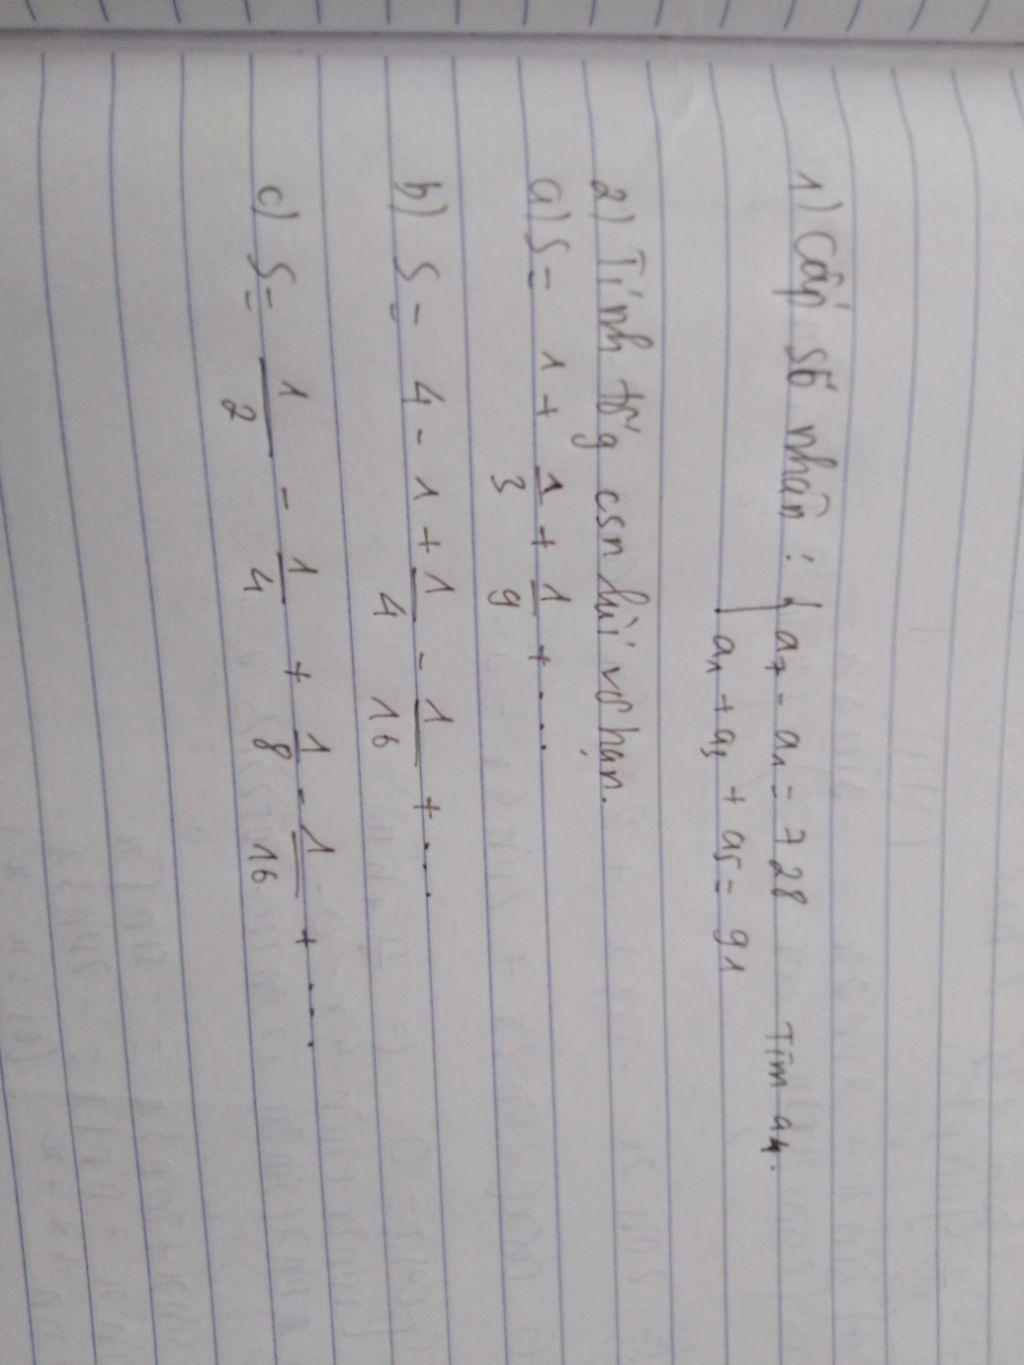 1) Cấp số nhân : { a₇ - a₁ = 728 Tìm a₄.
a₁ + a₃ + a₅ = 91
2) Tính tổg csn lùi vô hạn.
a) S = 1 + 1/3 + 1/9 + ....
b) S = 4 - 1 + 1/4 - 1/16 + ....
c) S = 1/2 - 1/4 + 1/8 - 1/16 + ....